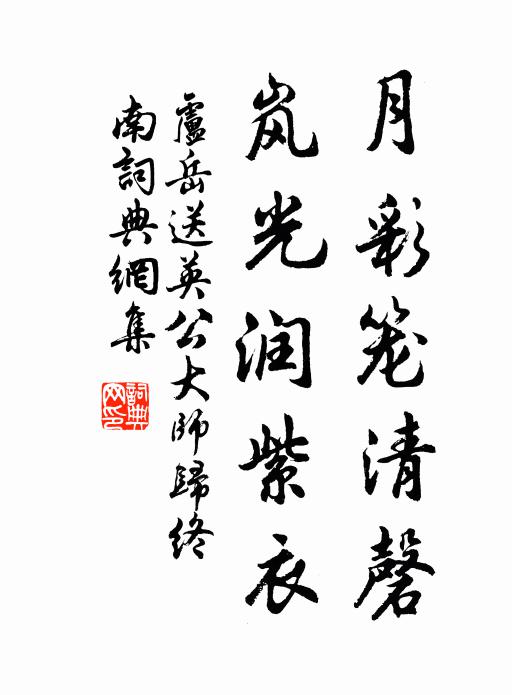 月彩笼清磬
岚光润紫衣
廬岳送英公大師歸終
南詞典網集
詞典
网印